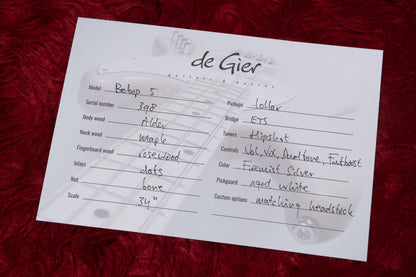 de Gier
guitars & basses
Model Bebop 5
Serial number 398
Body wood Alder
Neck wood maple
Fingerboard wood rosewood
Inlays dots
Nut bone
Scale 34"
Pickups lollar
Bridge ETS
Tuners Hipshot
Controls Vol, Vol, dualtone, Fatboost
Color Firemist Silver
Pickguard aged white
Custom options matching headstock